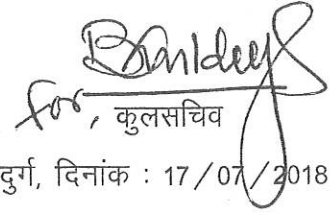 for, कुलसचिव
दुर्ग, दिनांक : 17/07/2018